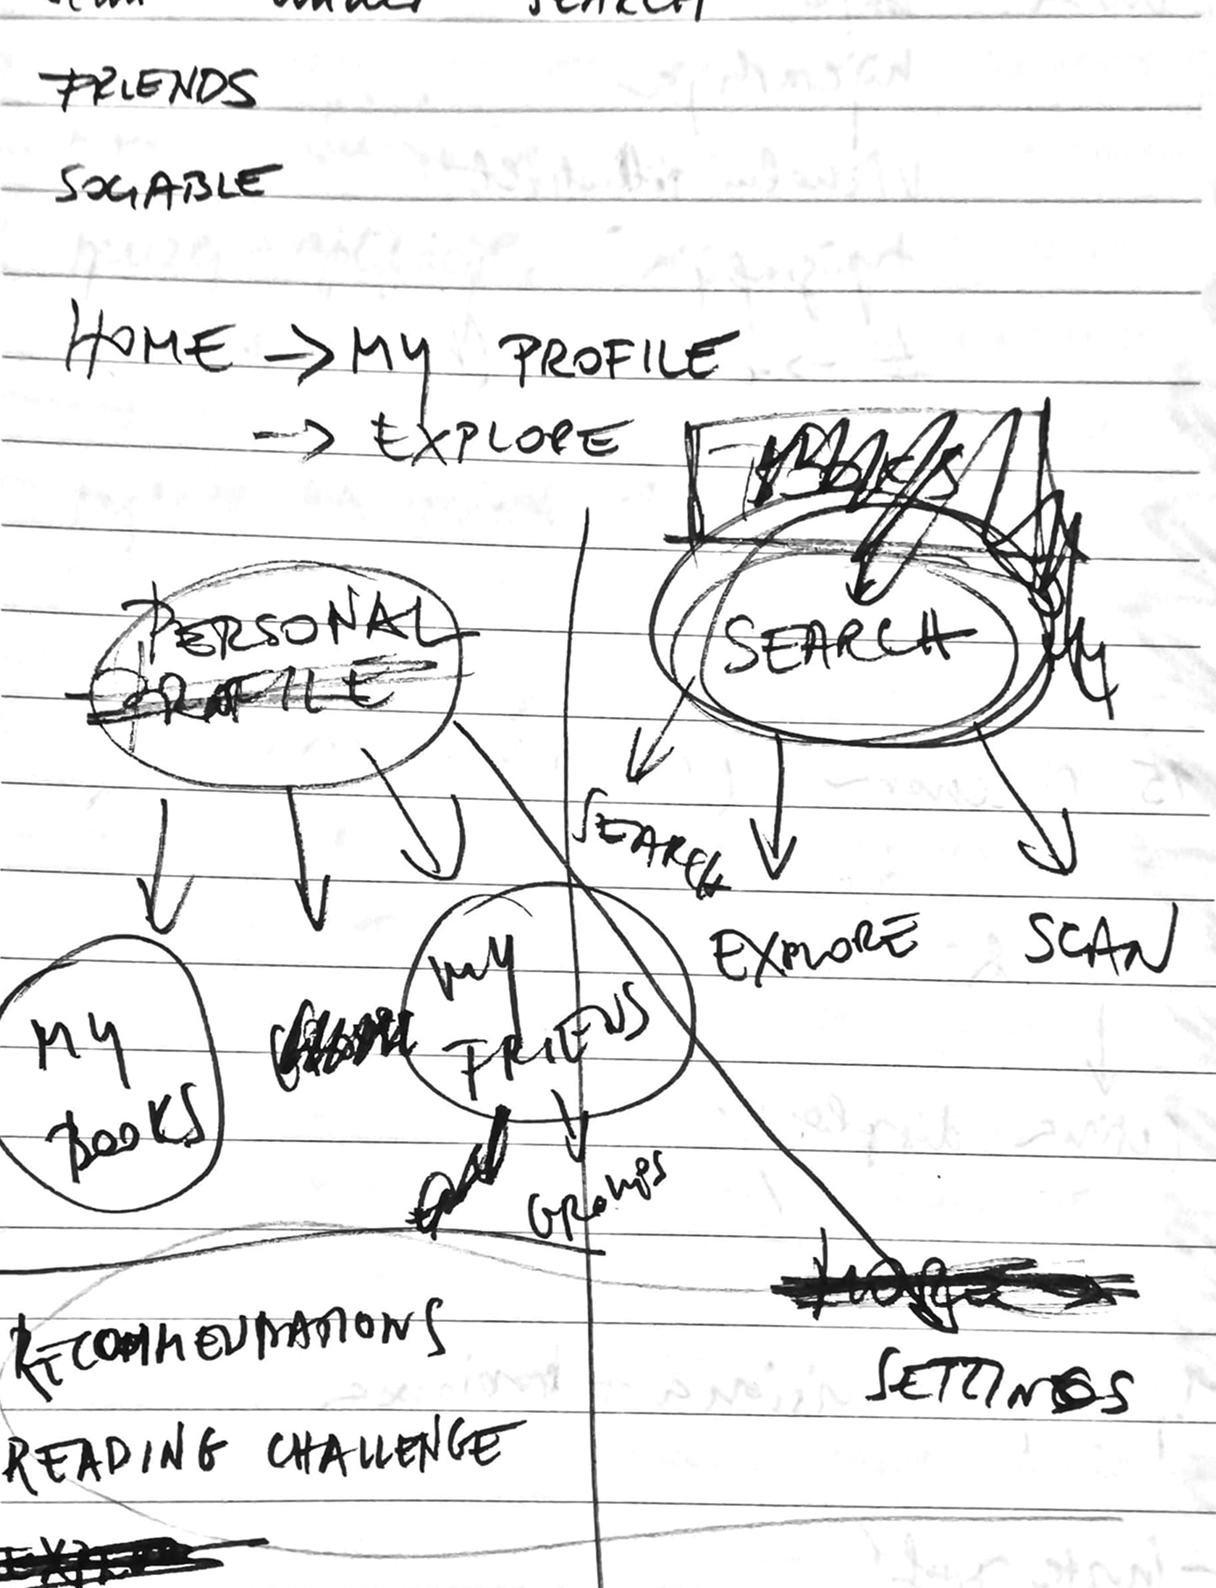 SEARCH
FRIENDS
SOCIABLE
HOME -> MY PROFILE
-> EXPLORE
BOOKS
PERSONAL
PROFILE
SEARCH
SEARCH
EXPLORE
SCAN
MY
BOOKS
MY
FRIENS
GROUPS
SETTINGS
RECOMMENDATIONS
READING CHALLENGE